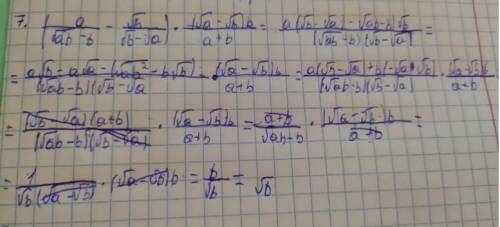 7. (a/(√ab-b) - √b/(√b-√a)) · (√a-√b)b/(a+b) = (a(√b-√a)-√ab-b√b)/((√ab-b)(√b-√a)) =
= (a√b-a√a-(√ab²-b√b))/((√ab-b)(√b-√a) · (√a-√b)b/(a+b) = (a(√b-√a+b(-√a+√b)/((√ab-b)(√b-√a) · (√a-√b)b/(a+b)
= (√b-√a)(a+b)/((√ab-b)(√b-√a)) · (√a-√b)b/(a+b) = (a+b)/(√ab-b) · (√a-√b)b/(a+b) =
= 1/(√b(√a-√b)) · (√a-√b)b = b/√b = √b